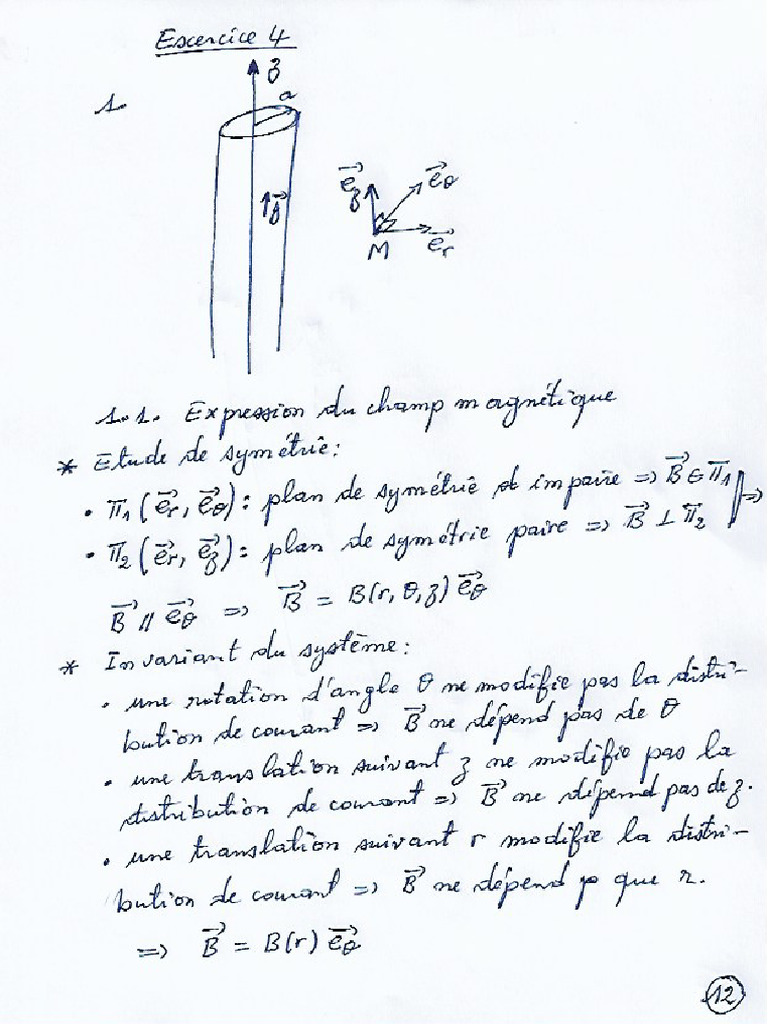 Excercice 4
1.
z
a
J⃗
e⃗z
e⃗θ
M
e⃗r
1.1. Expression du champ magnétique
* Etude de symétrie:
• π1 (e⃗r, e⃗θ): plan de symétrie impaire => B⃗ ∈ π1
• π2 (e⃗r, e⃗z): plan de symétrie paire => B⃗ ⊥ π2 =>
B⃗ // e⃗θ => B⃗ = B(r, θ, z) e⃗θ
* Invariant du système:
• une rotation d'angle θ ne modifie pas la distri-
bution de courant => B⃗ ne dépend pas de θ
• une translation suivant z ne modifie pas la
distribution de courant => B⃗ ne dépend pas de z.
• une translation suivant r modifie la distri-
bution de courant => B⃗ ne dépend p que r.
=> B⃗ = B(r) e⃗θ
12